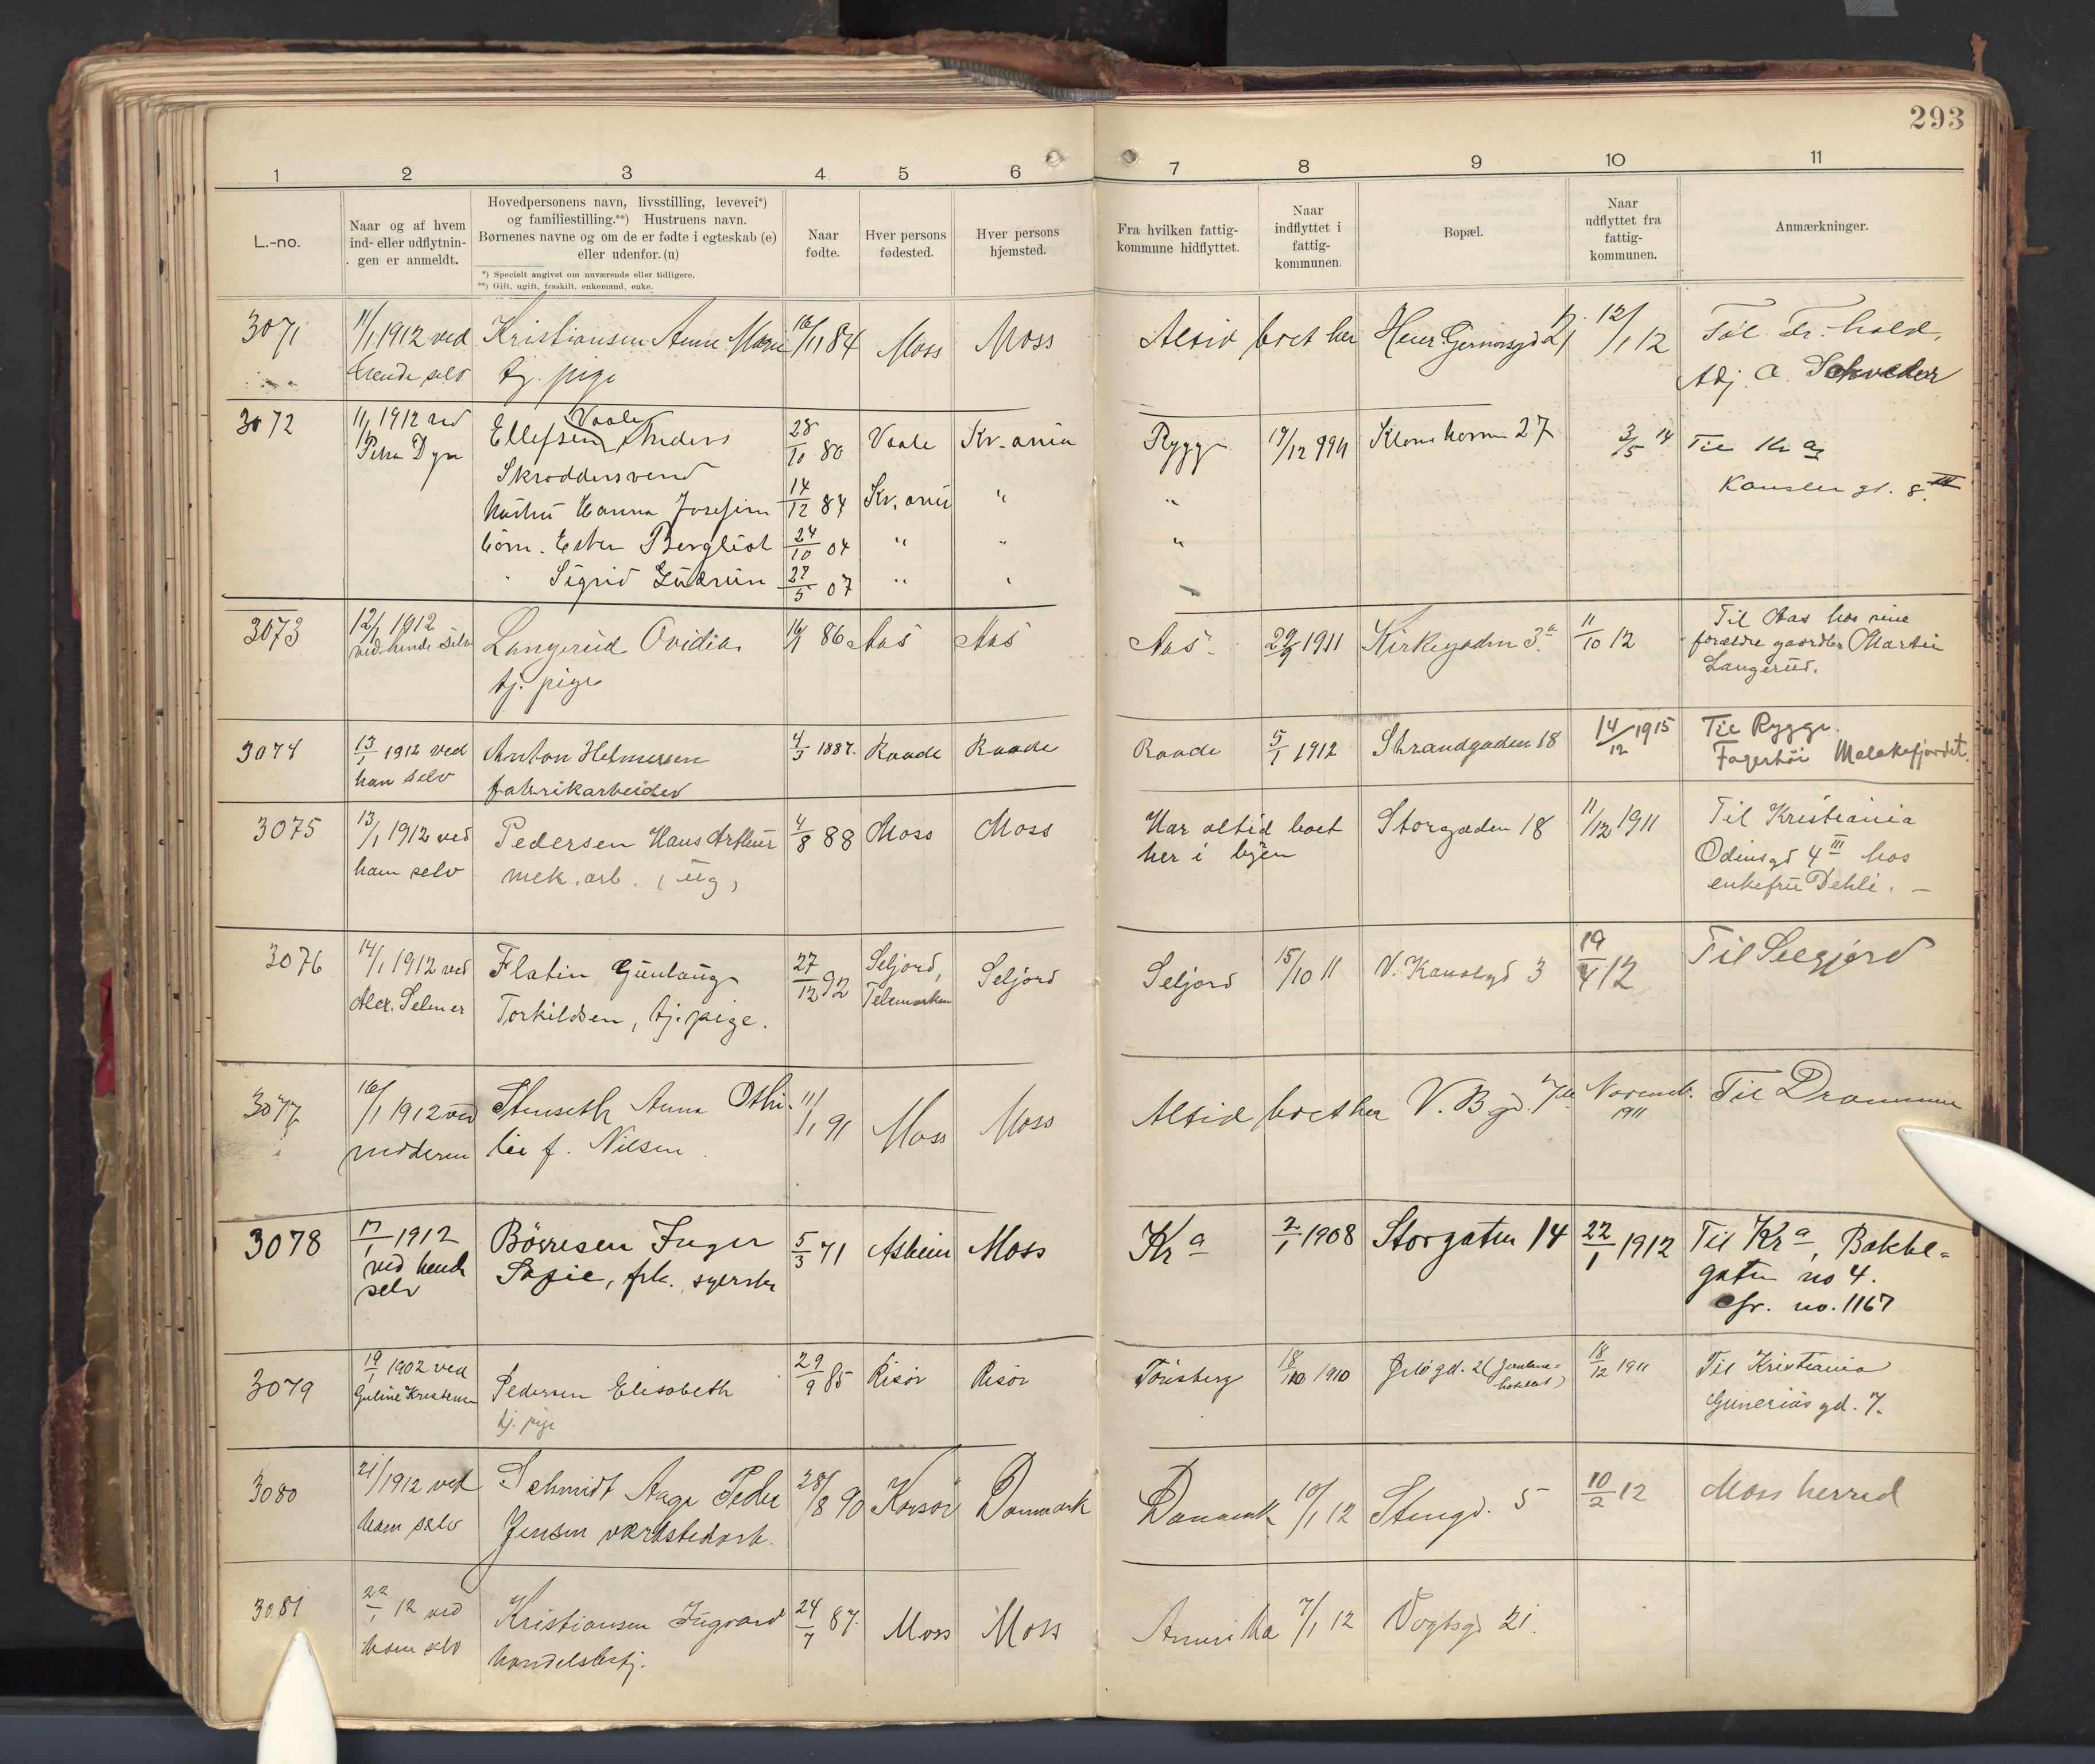 293
1 2 3 4 5 6 7 8 9 10 11
L.-no.
Naar og af hvem
ind- eller udflytnin-
gen er anmeldt.
Hovedpersonens navn, livsstilling, levevei*)
og familiestilling.**) Hustruens navn.
Børnenes navne og om de er fødte i egteskab (e)
eller udenfor. (u)
*) Specielt angivet om nuværende eller tidligere.
**) Gift, ugift, fraskilt, enkemand, enke.
Naar
fødte.
Hver persons
fødested.
Hver persons
hjemsted.
Fra hvilken fattig-
kommune hidflyttet.
Naar
indflyttet i
fattig-
kommunen.
Bopæl.
Naar
udflyttet fra
fattig-
kommunen.
Anmærkninger.
3071 11/1 1912 ved Kristiansen Anne Marie 16/11 84 Moss Moss Altid boet her 12/1 12 Til Fr.hald,
hende selv tj. pige Adj. A. Schrøder
3072 11/1 1912 ved Ellefsen Vaale Anders 28/10 80 Vaale Kr.ania Rygge 19/12 Klommestern 27 3/5 14 Til Kra
Petra Dyre Skræddersvend
Hustru Hanna Josefine 14/12 84 Kr.ania " "
børn. Ester Bergliot 24/10 04 " " "
" Sigrid Gudrun 27/5 07 " " "
Kanslergt. 8 III
3073 12/1 1912 Langerud Ovidia 16/1 86 Aas Aas Aas 29/9 1911 Kirkegaden 3a 11/10 12 Til Aas hos sine
ved hende selv tj. pige forældre gaardbr Martin
Langerud.
3074 13/1 1912 ved Anton Helmersen 4/3 1887. Raade Raade Raade 5/1 1912 Strandgaden 18 14/12 1915 Til Rygge.
han selv fabrikarbeider Fagerhøi Malakofjordet.
3075 13/1 1912 ved Pedersen Hans Arthur 4/8 88 Moss Moss Har altid boet Storgaden 18 11/12 1911 Til Kristiania
ham selv mek. arb. (ug) her i byen Odinsgd 4 III hos
enkefru Dehli. —
3076 14/1 1912 ved Flatin Gunlaug 27/12 92 Seljord, Seljord Seljord 15/10 11 V. Kanalgd 3 19/4 12 Til Seljord
Alex. Selmer Torkildsen, tj. pige. Telemarken
3077 16/1 1912 ved Stenseth Anna Othi- 11/1 91 Moss Moss Altid boet her V. Bgd. 7 Novemb. Til Drammen
moderen lie f. Nilsen 1911
3078 17/1 1912 Börresen Inger 5/3 71 Askim Moss Kra 2/1 1908 Storgaten 14 22/1 1912 Til Kra, Bakke-
ved hende Sofie, frk. syerske gaten no 4.
selv cfr. no. 1167
3079 19/1 1902 ved Pedersen Elisabeth 29/9 85 Risör Risör Tönsberg 18/10 1910 Jelögd. 2 (Jernbane- 18/12 1911 Til Kristiania
Guline Kristensen tj. pige hotellet) Guneriusgd. 7.
3080 21/1 1912 ved Schmidt Aage Peder 28/8 90 Korsör Danmark Danmark 10/1 12 Stengd. 5 10/2 12 Moss herred
ham selv Jensen værkstedarb.
3081 22/1 12 ved Kristiansen Ingvard 24/7 87. Moss Moss Amerika 7/1 12 Vogtsgd 21.
ham selv handelsbetj.